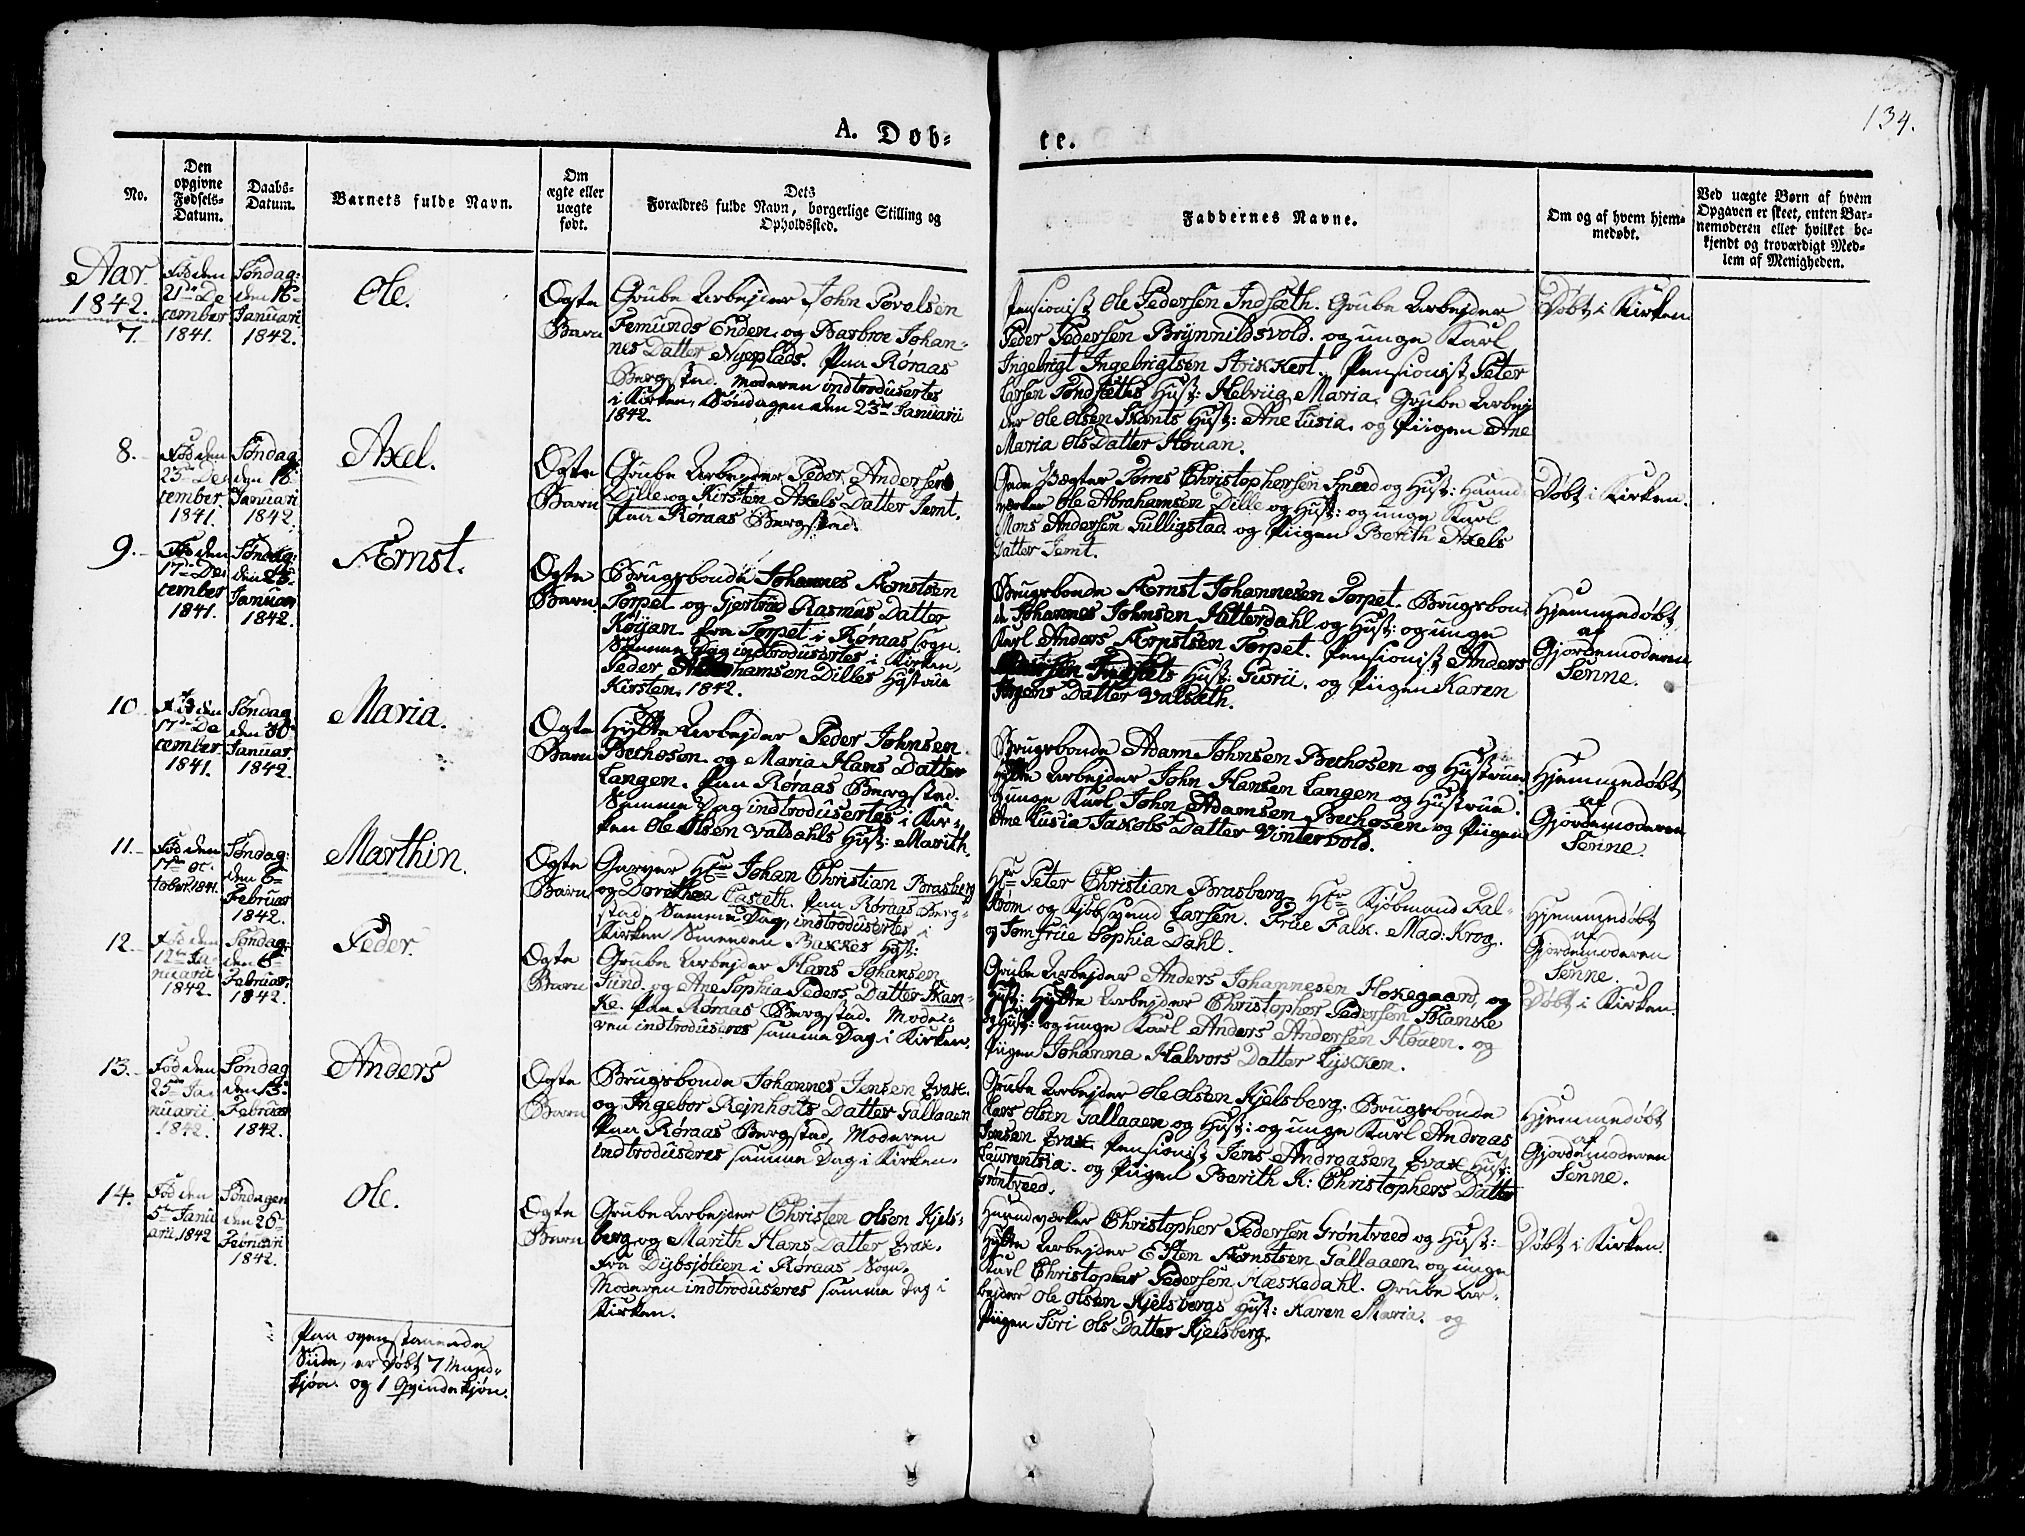 134.
A. Døb=
te.
No.
Den
opgivne
Fødsels=
Datum.
Daabs=
Datum.
Barnets fulde Navn.
Om
ægte eller
uægte
født.
Dets
Forældres fulde Navn, borgerlige Stilling og
Opholdssted.
Faddernes Navne.
Om og af hvem hjem=
medøbt.
Ved uægte Børn af hvem
Opgaven er skeet, enten Bar=
nemoderen eller hvilket be=
kjendt og troværdigt Med=
lem af Menigheden.
Aar
1842.
7.
Fød den
21de De
cember
1841.
Søndag:
den 16de
Januarii
1842.
Ole.
Ægte
Barn
Grube Arbejder John Povelsen
Femunds Enden. og Barbroe Johan=
nes Datter Nyeplads. Paa Røraas
Bergstad. Moderen indtroduisertes
i Kirken, Søndagen den 23de Januarii
1842.
Pensionist Ole Pedersen Indsæth. Grube Arbejder
Peder Pedersen Brynnildsvold. og unge Karl
Ingebrigt Ingebrigtsen Strikkert. Pensionist Peter
Larsen Tondsæths Hust: Helvig Maria. Grube Arbej
der Ole Olsen Skants Hust: Ane Lusia. og Piigen Ane
Maria Ols Datter Houan.
Døbt i Kirken
8.
Fød den
23de De
cember.
1841.
Søndag
den 16
Januari
1842.
Axel.
Ægte
Barn
Grube Arbejder Peder Andersen
Dille og Kirsten Axels Datter Jemt.
Paa Røraas Bergstad.
Gade Vægter Tørres Christophersen Sneed og Hust: Haand
værker Ole Abrahamsen Dille og Hust: og unge Karl
Mons Andersen Gulligstad og Piigen Berith Axels
Datter Jemt.
Døbt i Kirken.
9.
Fød den
17de De
cember
1841.
Søndag:
den 23
Januari
1842.
Ærnst.
Ægte
Barn
Brugsbonde Johannes Ærnstsen
Torpet og Gjertrud Rasmus Datter
Kojan. fra Torpet i Røraas Sogn.
Samme Dag indtroduisertes i Kirken,
Peder Abrahamsen Dilles Hustrue
Kirsten. 1842.
Brugsbonde Ærnst Johannesen Torpet. Brugsbon
de Johannes Johnsen Hitterdahl og Hust: og unge
Karl Anders Ærnstsen Torpet. Pensionist Anders
Indsets Hust: Gurii. og Piigen Karen
Jørgens Datter Valsæth.
Hjemmedøbt
af
Gjordemoderen
Senne.
10
Fød den
17de De
cember
1841.
Søndag
den 30
Januar.
1842.
Maria.
Ægte
Barn
Hytte Arbejder Peder Johnsen
Bechosen. og Maria Hans Datter
Langen. Paa Røraas Bergstad.
Samme Dag indtroduisertes i Kir=
ken Ole Olsen Valdahls Hust: Marith.
Brugsbonde Adam Johnsen Bechosen og Hustrue
Hytte Arbejder John Hansen Langen og Hustrue.
og unge Karl John Adamsen Bechosen. og Piigen
Ane Lusia Jakobs Datter Vintervold.
Hjemmedøbt
af
Gjordemoderen
Senne.
11.
Fød den
17de Oc
tober 1841.
Søndag:
den 6te
Februar
1842.
Marthin.
Ægte
Barn
Garver Hr Johan Christian Brasberg
og Dorithea Caseth. Paa Røraas Berg=
stad. Samme Dag, indtroduisertes i
Kirken Smeeden Bakkes Hust:
Hr Peter Christian Brasberg. Hr Kjøbmand Fal=
strøm. og Kjøbsvend Larsen. Frue Falk. Mad: Krog.
og Jomfrue Sophia Dahl.
Hjemmedøbt
af
Gjordemoderen
Senne.
12.
Fød den
12te Ja=
nuarii
1842.
Søndag:
den 6te
Februar.
1842.
Peder.
Ægte
Barn
Grube Arbejder Hans Johansen
Sund. og Ane Sophia Peders Datter Skan=
ke. Paa Røraas Bergstad. Mode=
ren indtroduiseres samme Dag i Kirken.
Grube Arbejder Anders Johannesen Hokegaard, og
Hust: Hytte Arbejder Christopher Pedersen Skanke
og Hust: og unge Karl Anders Andersen Houen. og
Piigen Johanna Halvors Datter Lykken.
Døbt i Kirken.
13.
Fød den
25de Ja
nuarii.
1842.
Søndag
den 13
Februar
1842.
Anders
Ægte
Barn
Brugsbonde Johannes Jensen Evax.
og Ingebor Rejnholts Datter Gallaaen
Paa Røraas Bergstad, Moderen
indtroduiseres samme Dag i Kirken.
Grube Arbejder Ole Olsen Kjelsberg. Brugsbonde
Lars Olsen Gallaaen og Hust: og unge Karl Andreas
Jensen Evax Pensionist Jens Andreasen Evax Hust:
Laurentsia. og Piigen Berith K: Christophers Datter
Grøntveed.
Hjemmedøbt
af
Gjordemoderen
Senne.
14.
Fød den
5te Janu
arii. 1842
Søndagen
den 26de
Februari
1842.
Ole.
Ægte
Barn
Grube Arbejder Christen Olsen Kjels=
berg og Marith Hans Datter Evax.
Fra Dybsjølien i Røraas Sogn.
Moderen indtroduiseres samme Dag i
Kirken.
Haandværker Christopher Pedersen Grøntveed og Hust:
Hytte Arbejder Esten Ærnstsen Gallaaen og unge
Karl Christopher Pedersen Hæskedahl. Grube Ar=
bejder Ole Olsen Kjelsbergs Hust: Karen Maria. og
Piigen Siri Ols Datter Kjelsberg.
Døbt i Kirken.
Paa ovenstaaende
Siide, er Døbt 7 Mand=
kjøn. og 1 Qvindekjøn.